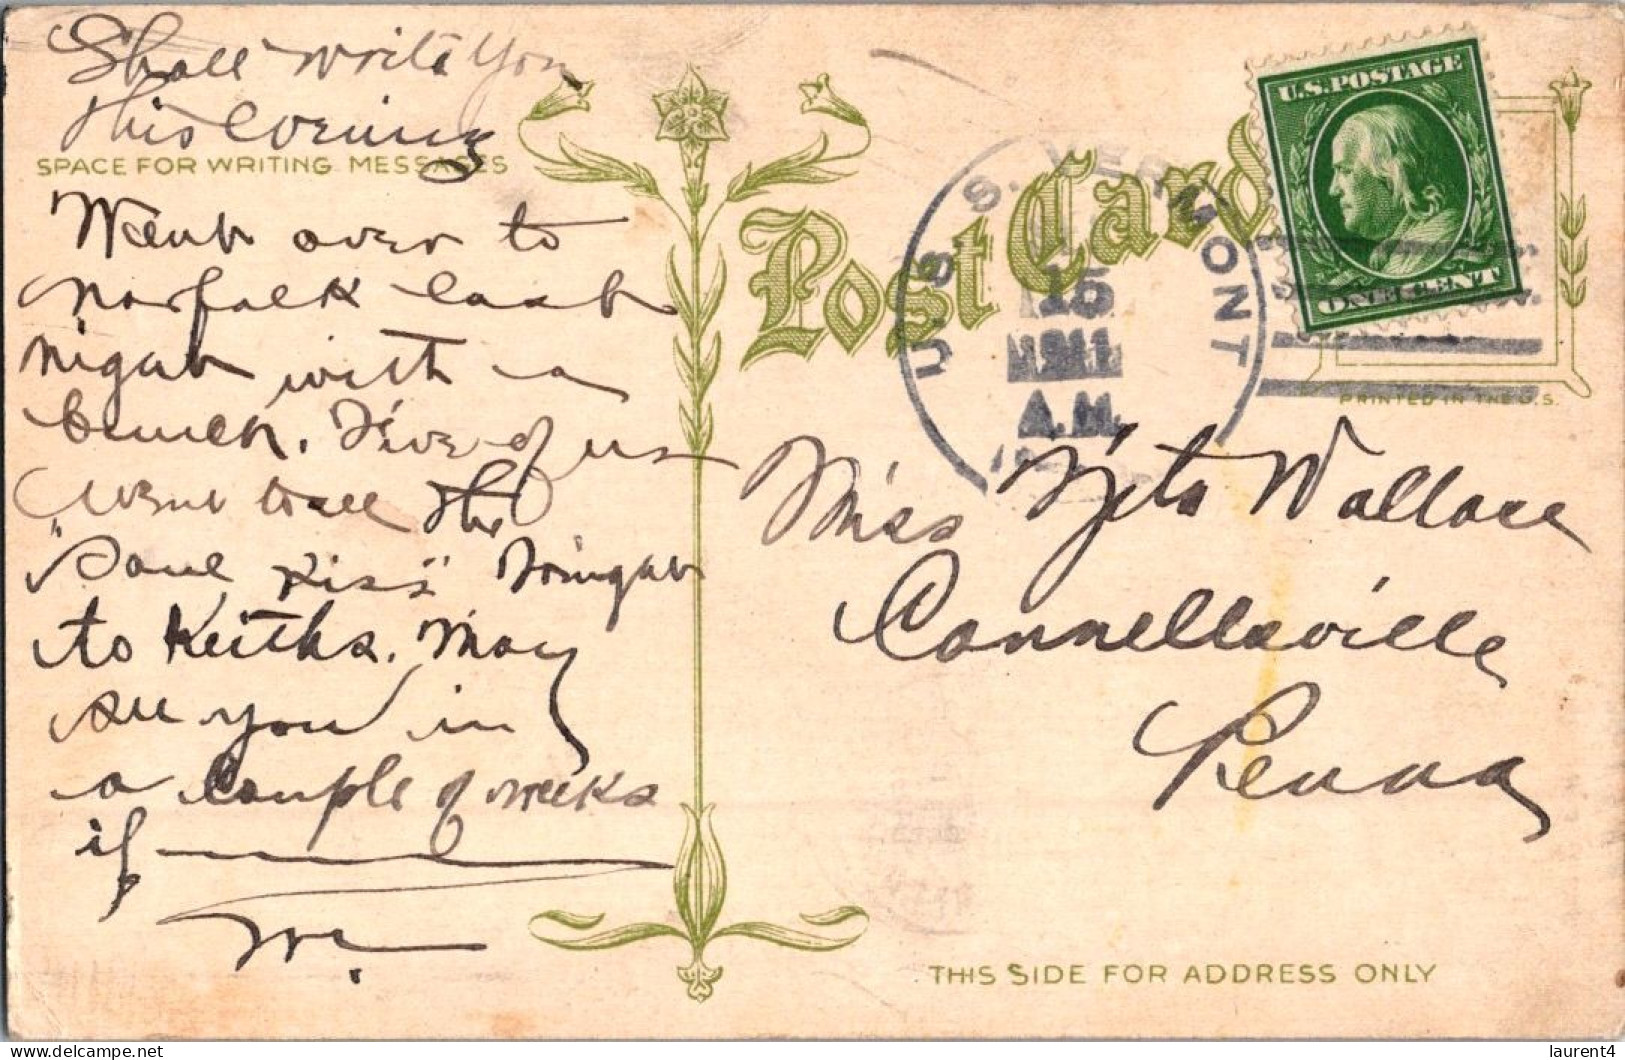 Shall write you
this evening
SPACE FOR WRITING MESSAGES
Went over to
Norfolk last
night with a
bunch. Five of us
went to see the
"Soul Kiss" Tonight
to Keiths. May
see you in
a couple of weeks
if
Post Card
U.S.S. VERMONT
15
1911
A.M.
U.S. POSTAGE
ONE CENT
PRINTED IN THE U.S.
Miss Wallace
Connellsville
Penna
THIS SIDE FOR ADDRESS ONLY
delcampe.net
laurent4